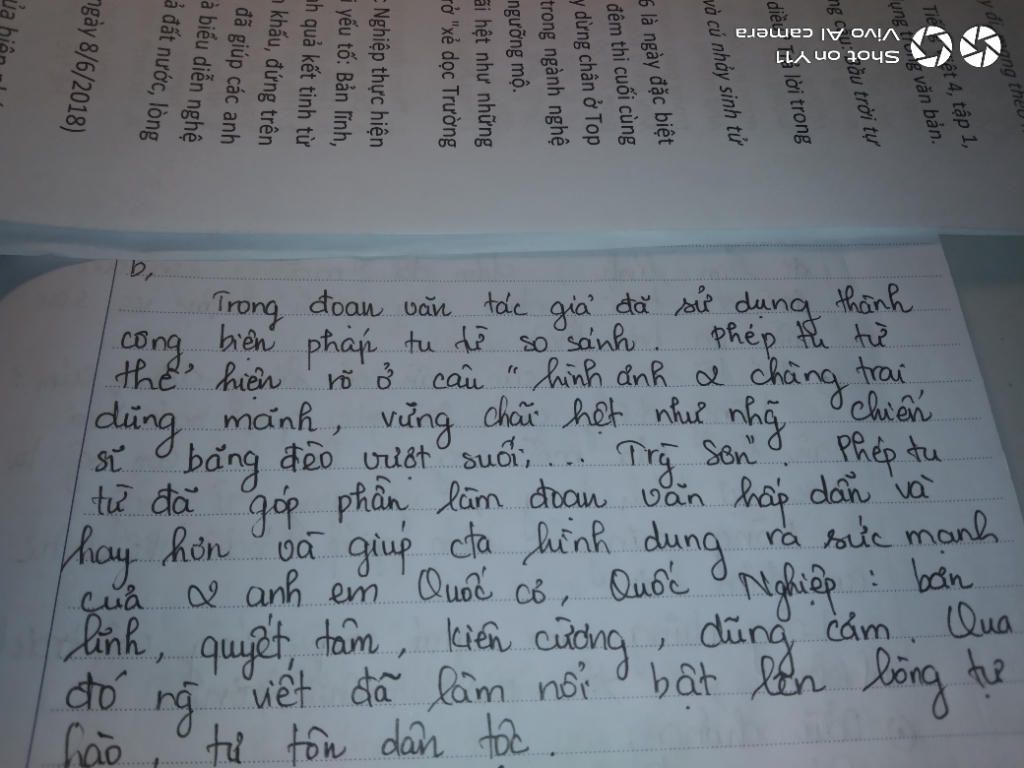 Shot on Y11
Vivo AI camera
4, tập 1,
trong văn bản.
trời tự
lời trong
và cú nhảy sinh tử
6 là ngày đặc biệt
đêm thi cuối cùng
y dừng chân ở Top
trong ngành nghệ
ngưỡng mộ.
ãi hệt như những
rở "xẻ dọc Trường
c Nghiệp thực hiện
i yếu tố: Bản lĩnh,
nh quả kết tinh từ
n khấu, đứng trên
đã giúp các anh
à biểu diễn nghệ
ả đất nước, lòng
ngày 8/6/2018)
b,
Trong đoạn văn tác giả đã sử dụng thành
công biện pháp tu từ so sánh. Phép tu từ
thể hiện rõ ở câu "hình ảnh 2 chàng trai
dũng mãnh, vững chãi hệt như nhg~ chiến
sĩ băng đèo vượt suối,... Trg` Sơn". Phép tu
từ đã góp phần làm đoạn văn hấp dẫn và
hay hơn và giúp cta hình dung ra sức mạnh
của 2 anh em Quốc cơ, Quốc Nghiệp: bản
lĩnh, quyết tâm, kiên cường, dũng cảm. Qua
đó ng` viết đã làm nổi bật lên lòng tự
hào, tự tôn dân tộc.